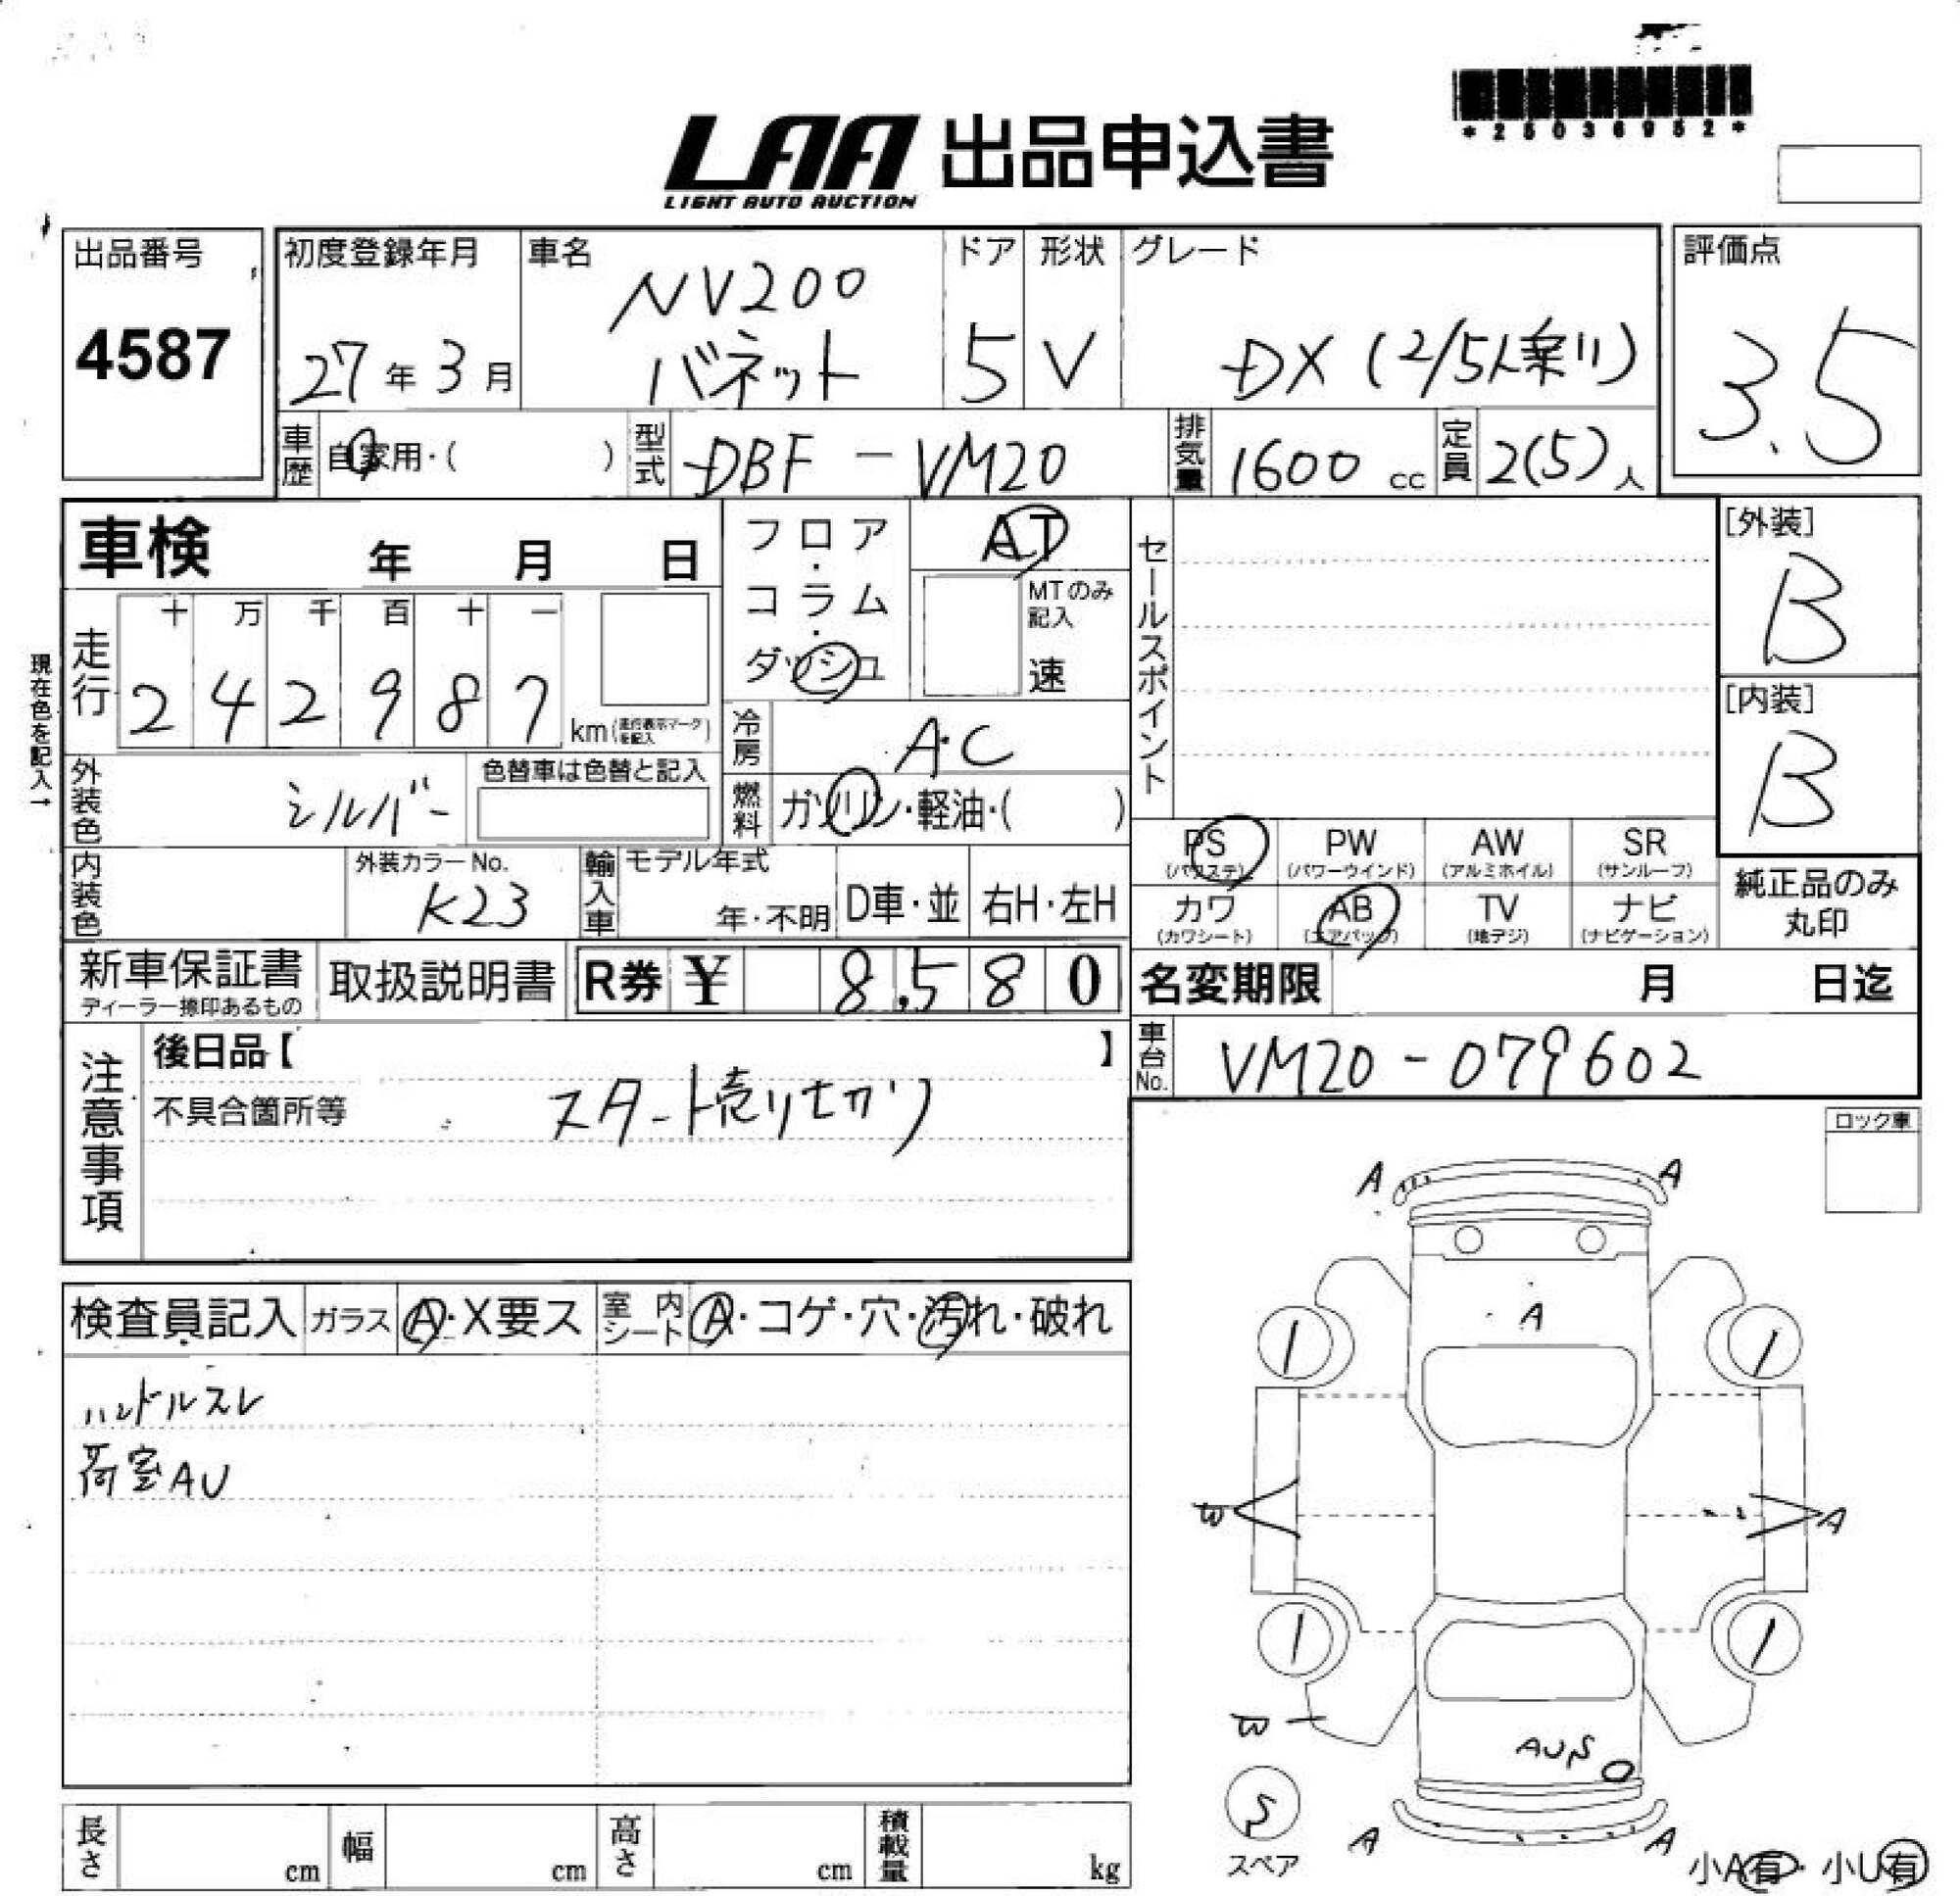 *25036952*
LAA 出品申込書
LIGHT AUTO AUCTION
出品番号
4587
初度登録年月
27年3月
車名
NV200
バネット
ドア
5
形状
V
グレード
DX (2/5人乗り)
評価点
3.5
車歴 自家用・( )
型式 DBF-VM20
排気量 1600 cc
定員 2(5)人
車検 年 月 日
フロア・コラム・ダッシュ
AT
MTのみ記入
速
セールスポイント
[外装]
B
[内装]
B
現在色を記入→
走行
十 万 千 百 十 一
2 4 2 9 8 7 km(走行表示マークを記入)
冷房 A・C
外装色 シルバー
色替車は色替と記入
燃料 ガソリン・軽油・( )
PS (パワステ)
PW (パワーウインド)
AW (アルミホイル)
SR (サンルーフ)
カワ (カワシート)
AB (エアバッグ)
TV (地デジ)
ナビ (ナビゲーション)
純正品のみ
丸印
内装色
外装カラーNo.
K23
輸入車
モデル年式
年・不明
D車・並
右H・左H
新車保証書
ディーラー捺印あるもの
取扱説明書
R券 ¥ 8,580
名変期限 月 日迄
車台No. VM20-079602
注意事項
後日品【 】
不具合箇所等
スタート売りセカリ
ロック車
検査員記入
ガラス A・X要ス
室内シート A・コゲ・穴・汚れ・破れ
ハンドルスレ
荷室AU
A A
A
A
AUS
A A
S
スペア
小A有・小U有
長さ cm
幅 cm
高さ cm
積載量 kg